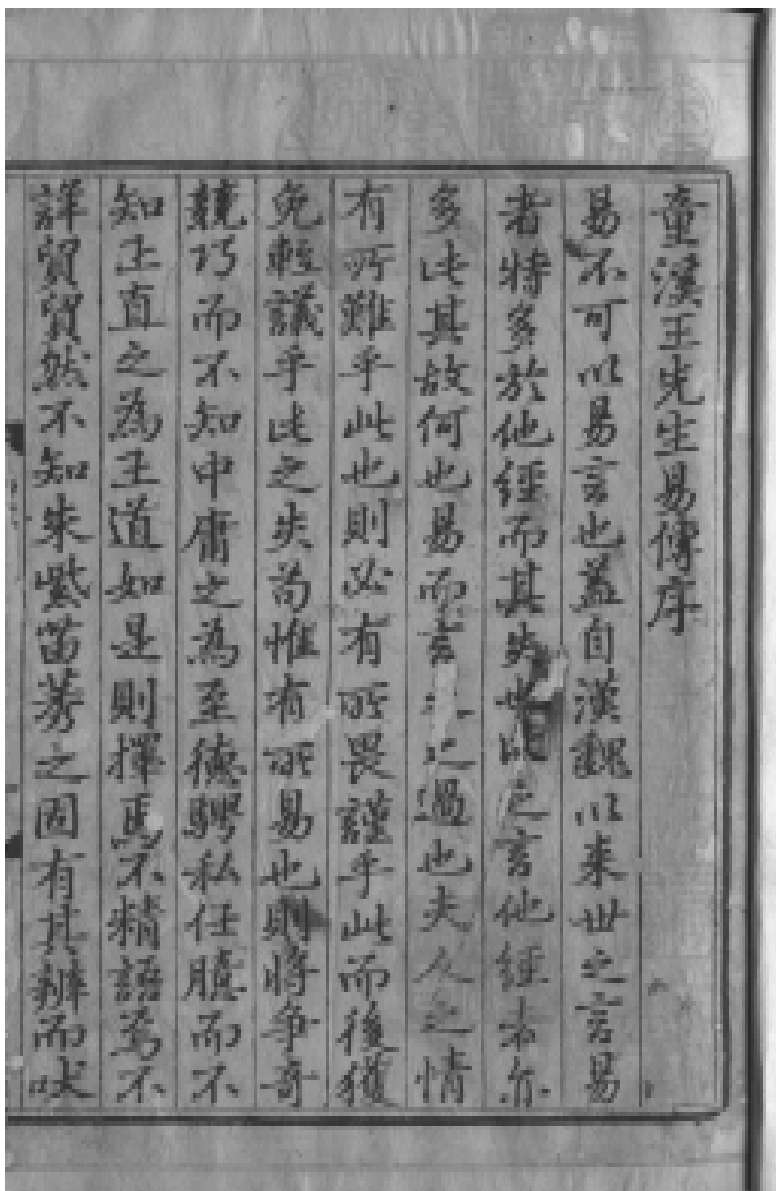 童溪王先生易傳序
易不可以易言也蓋自漢魏以來世之言易
者特多於他經而其失也比之言他經者亦
多此其故何也易而言之之過也夫人之情
有所難乎此也則必有所畏謹乎此而後獲
免輕議乎此之失苟惟有所易也則將爭奇
競巧而不知中庸之為至德騁私任臆而不
知正直之為王道如是則擇焉不精語焉不
詳貿貿然不知朱紫苗莠之固有其辨而吠